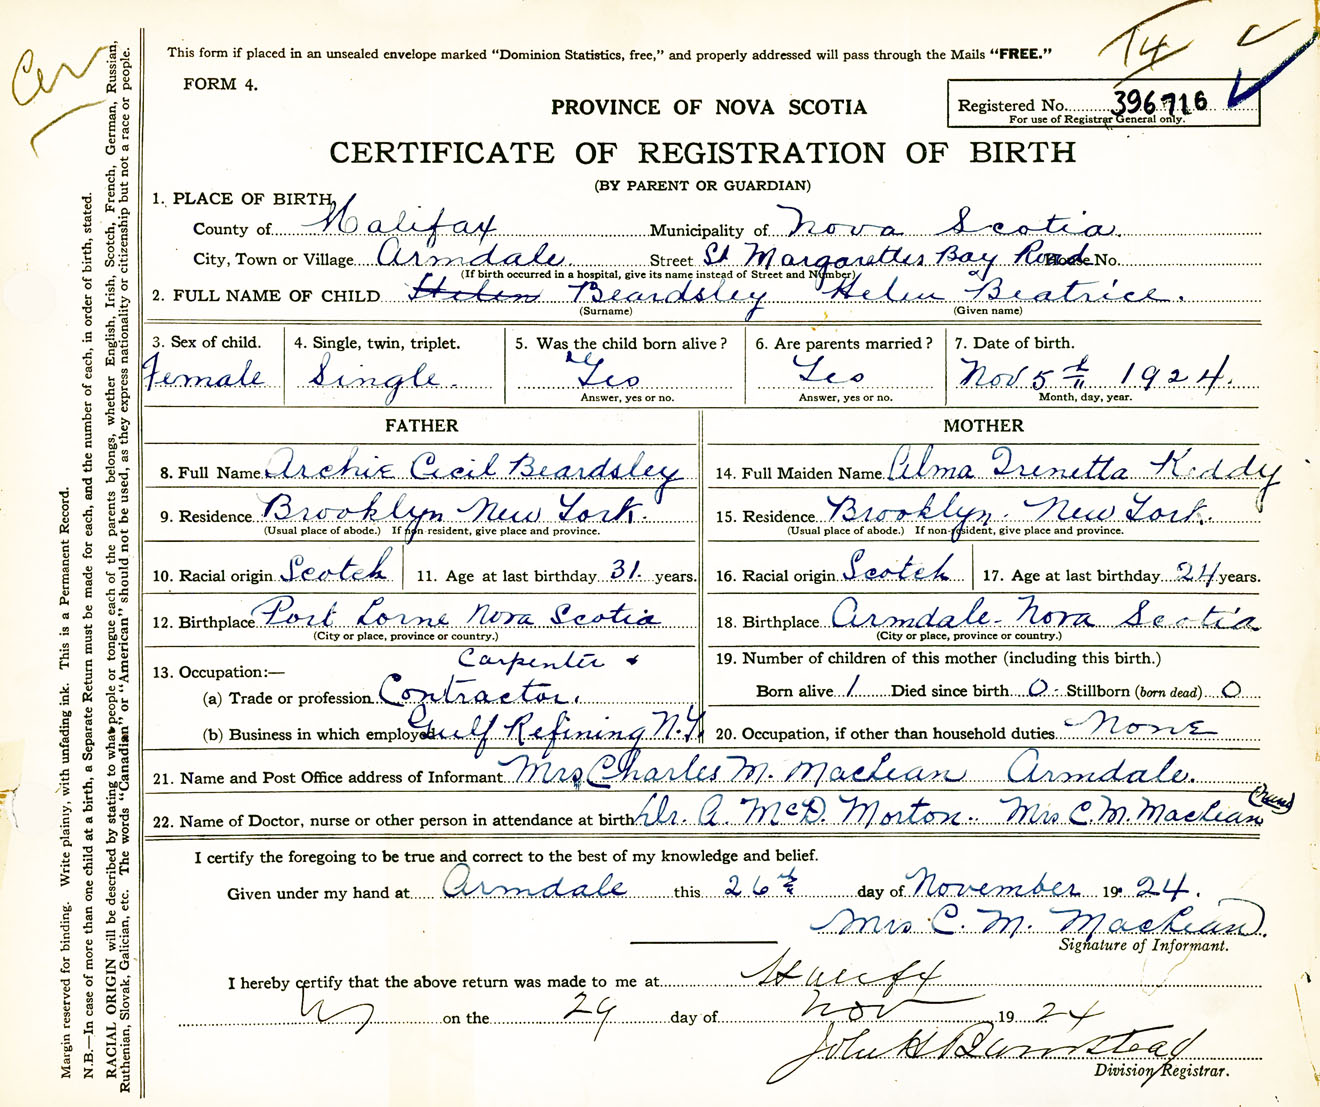 Cer
T4
This form if placed in an unsealed envelope marked "Dominion Statistics, free," and properly addressed will pass through the Mails "FREE."
FORM 4.
PROVINCE OF NOVA SCOTIA
Registered No. 396716
For use of Registrar General only.
CERTIFICATE OF REGISTRATION OF BIRTH
(BY PARENT OR GUARDIAN)
1. PLACE OF BIRTH
County of Halifax Municipality of Nova Scotia.
City, Town or Village Armdale Street St Margarettes Bay Road House No.
(If birth occurred in a hospital, give its name instead of Street and Number)
2. FULL NAME OF CHILD Helen Beardsley Helen Beatrice.
(Surname) (Given name)
3. Sex of child. 4. Single, twin, triplet. 5. Was the child born alive? 6. Are parents married? 7. Date of birth.
Female Single. Yes Yes Nov 5th 1924.
Answer, yes or no. Answer, yes or no. Month, day, year.
FATHER MOTHER
8. Full Name Archie Cecil Beardsley 14. Full Maiden Name Alma Trenetta Keddy
9. Residence Brooklyn New York. 15. Residence Brooklyn. New York.
(Usual place of abode.) If non-resident, give place and province. (Usual place of abode.) If non-resident, give place and province.
10. Racial origin Scotch 11. Age at last birthday 31. years. 16. Racial origin Scotch 17. Age at last birthday 24 years.
12. Birthplace Port Lorne Nova Scotia 18. Birthplace Armdale - Nova Scotia
(City or place, province or country.) (City or place, province or country.)
13. Occupation:— Carpenter & 19. Number of children of this mother (including this birth.)
(a) Trade or profession Contractor. Born alive 1 Died since birth 0 - Stillborn (born dead) 0
(b) Business in which employed Gulf Refining N.Y. 20. Occupation, if other than household duties None
21. Name and Post Office address of Informant Mrs Charles M. MacLean Armdale.
22. Name of Doctor, nurse or other person in attendance at birth Dr. A. McD. Morton. Mrs C. M. MacLean (Nurse)
I certify the foregoing to be true and correct to the best of my knowledge and belief.
Given under my hand at Armdale this 26th day of November 1924.
Mrs C. M. MacLean.
Signature of Informant.
I hereby certify that the above return was made to me at Halifax
on the 29 day of Nov 1924
John H Barnstead
Division Registrar.
Margin reserved for binding. Write plainly, with unfading ink. This is a Permanent Record.
N.B.—In case of more than one child at a birth, a Separate Return must be made for each, and the number of each, in order of birth, stated.
RACIAL ORIGIN will be described by stating to what people or tongue each of the parents belongs, whether English, Irish, Scotch, French, German, Russian,
Ruthenian, Slovak, Galician, etc. The words "Canadian" or "American" should not be used, as they express nationality or citizenship but not a race or people.